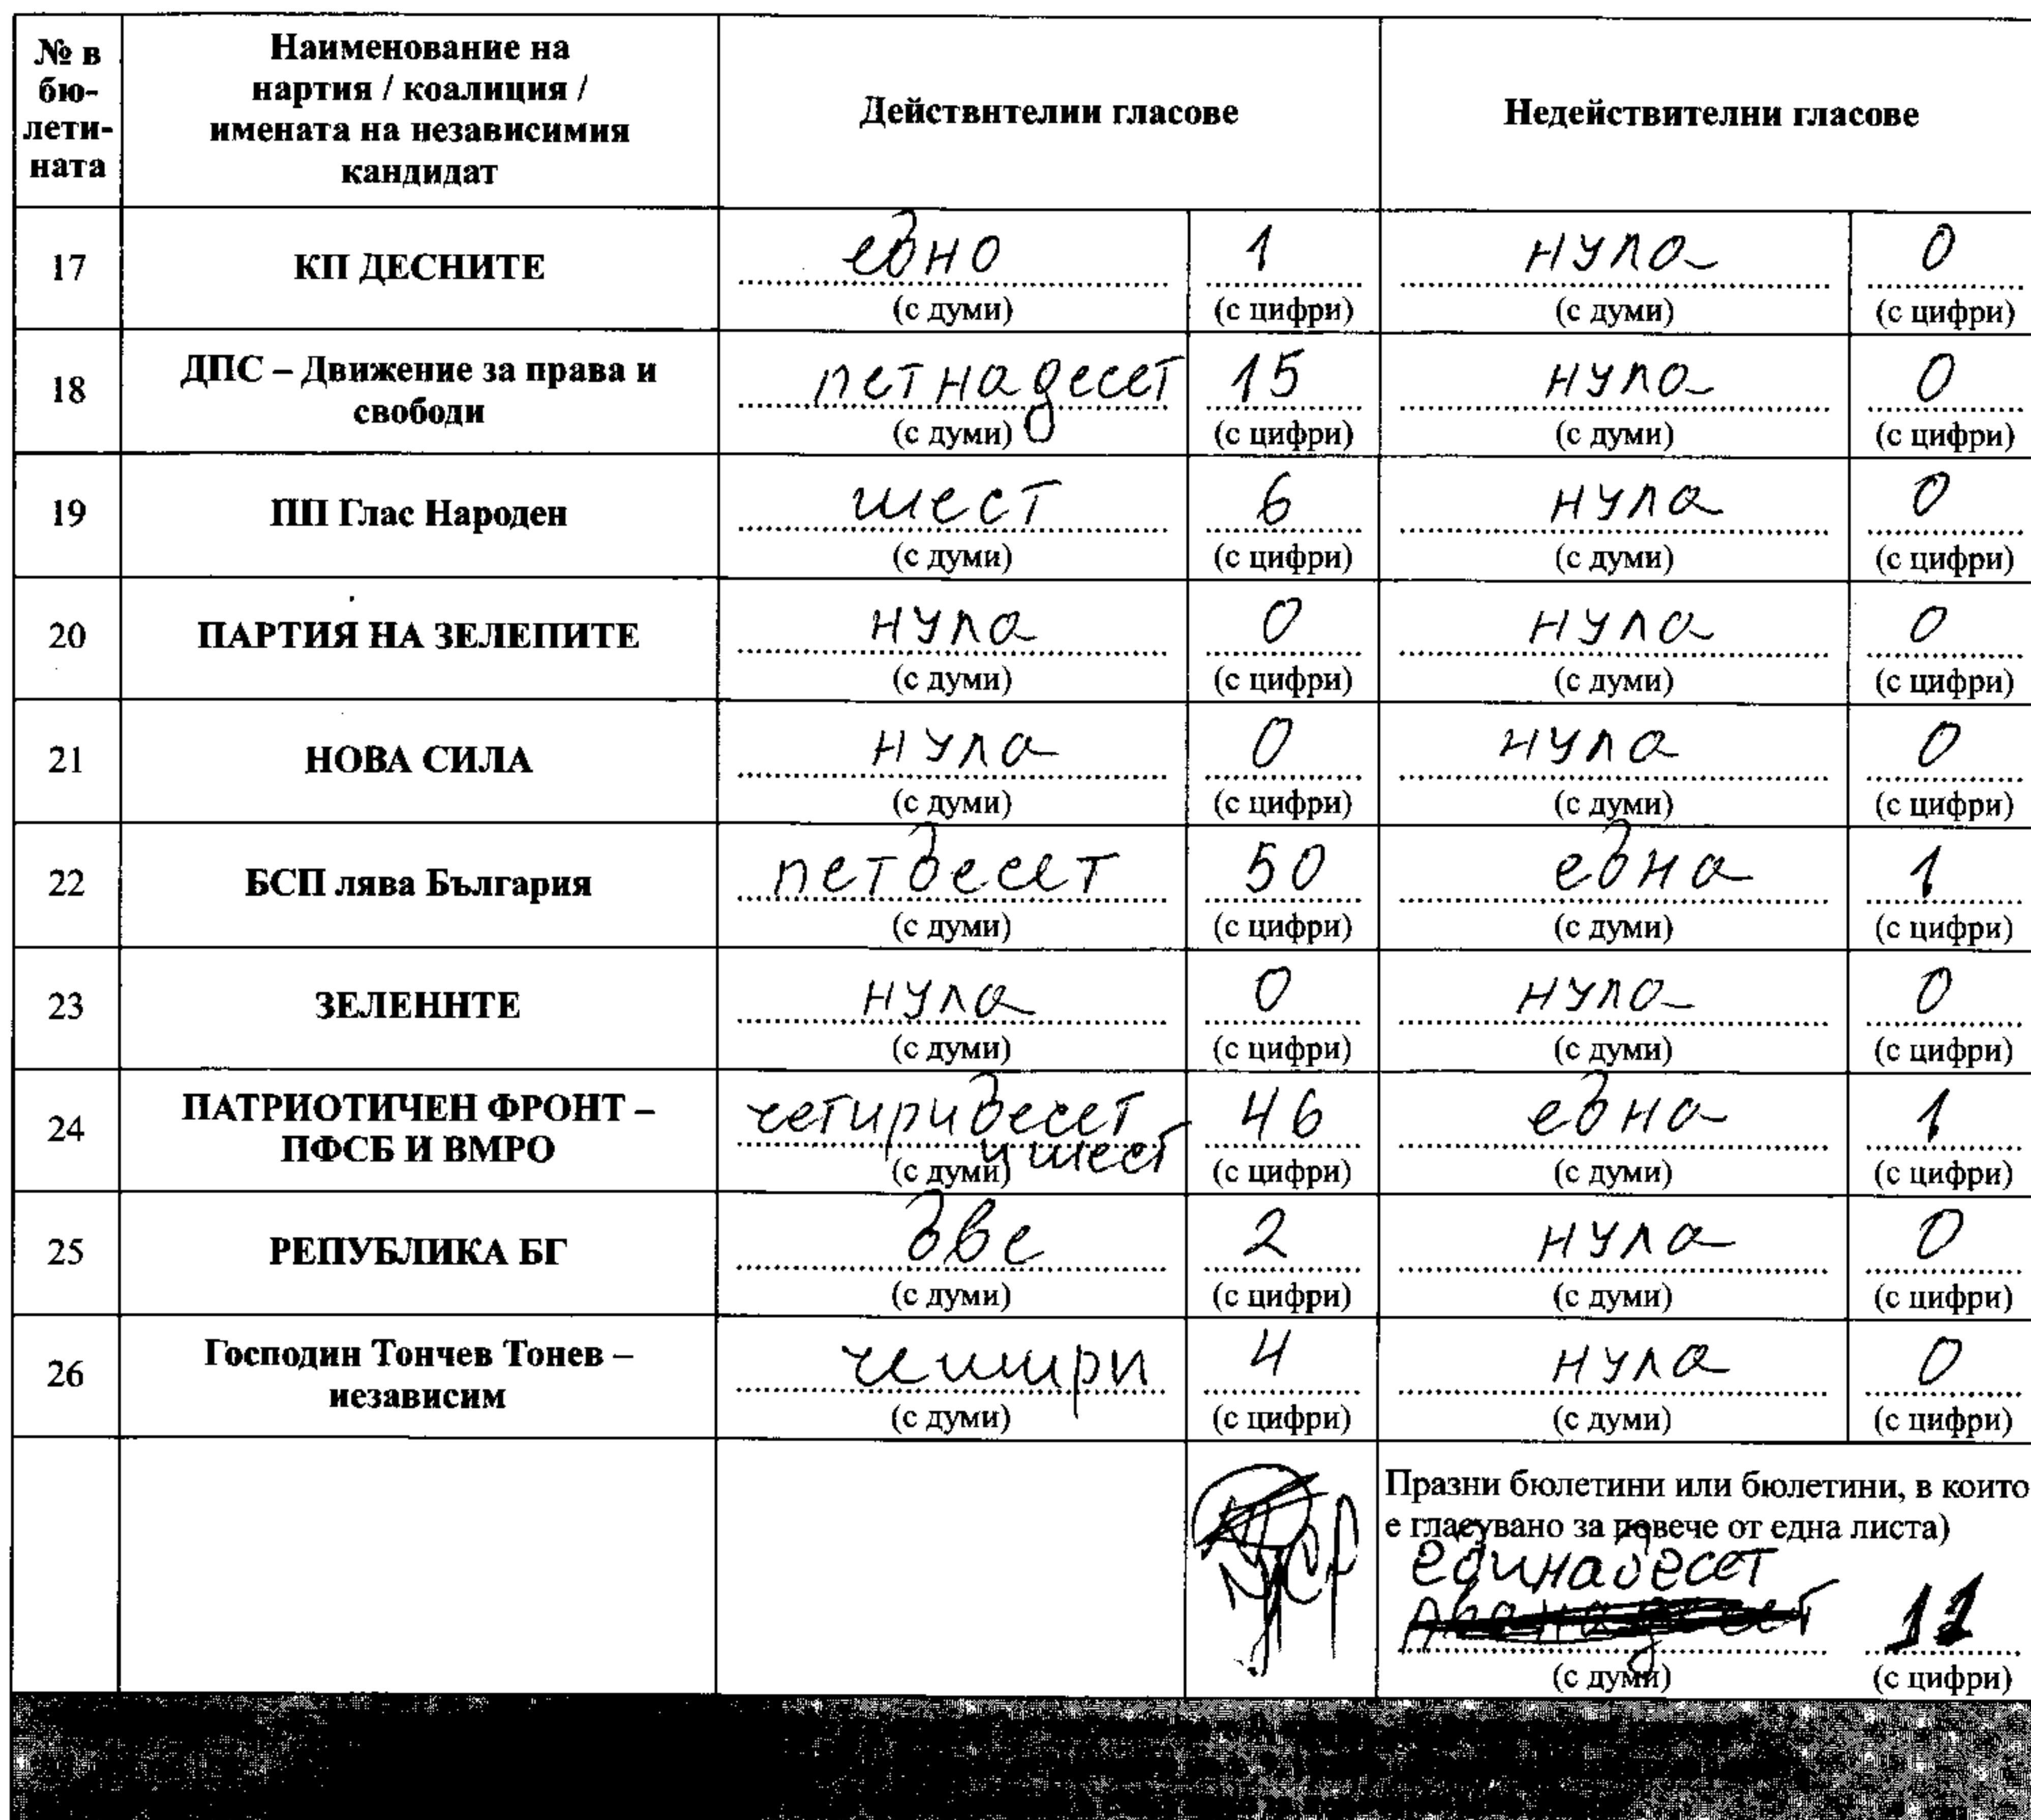 № в бю-лети-ната
Наименование на
нартия / коалиция /
имената на независимия
кандидат
Действнтелии гласове
Недействителни гласове
17 КП ДЕСНИТЕ едно 1 нула 0
(с думи) (с цифри) (с думи) (с цифри)
18 ДПС – Движение за права и свободи петнадесет 15 нула 0
(с думи) (с цифри) (с думи) (с цифри)
19 ПП Глас Народен шест 6 нула 0
(с думи) (с цифри) (с думи) (с цифри)
20 ПАРТИЯ НА ЗЕЛЕПИТЕ нула 0 нула 0
(с думи) (с цифри) (с думи) (с цифри)
21 НОВА СИЛА нула 0 нула 0
(с думи) (с цифри) (с думи) (с цифри)
22 БСП лява България петдесет 50 една 1
(с думи) (с цифри) (с думи) (с цифри)
23 ЗЕЛЕННТЕ нула 0 нула 0
(с думи) (с цифри) (с думи) (с цифри)
24 ПАТРИОТИЧЕН ФРОНТ – ПФСБ И ВМРО четиридесет и шест 46 една 1
(с думи) (с цифри) (с думи) (с цифри)
25 РЕПУБЛИКА БГ две 2 нула 0
(с думи) (с цифри) (с думи) (с цифри)
26 Господин Тончев Тонев – иезависим четири 4 нула 0
(с думи) (с цифри) (с думи) (с цифри)
Празни бюлетини или бюлетини, в които
е гласувано за повече от една листа)
единадесет
11
(с думи) (с цифри)